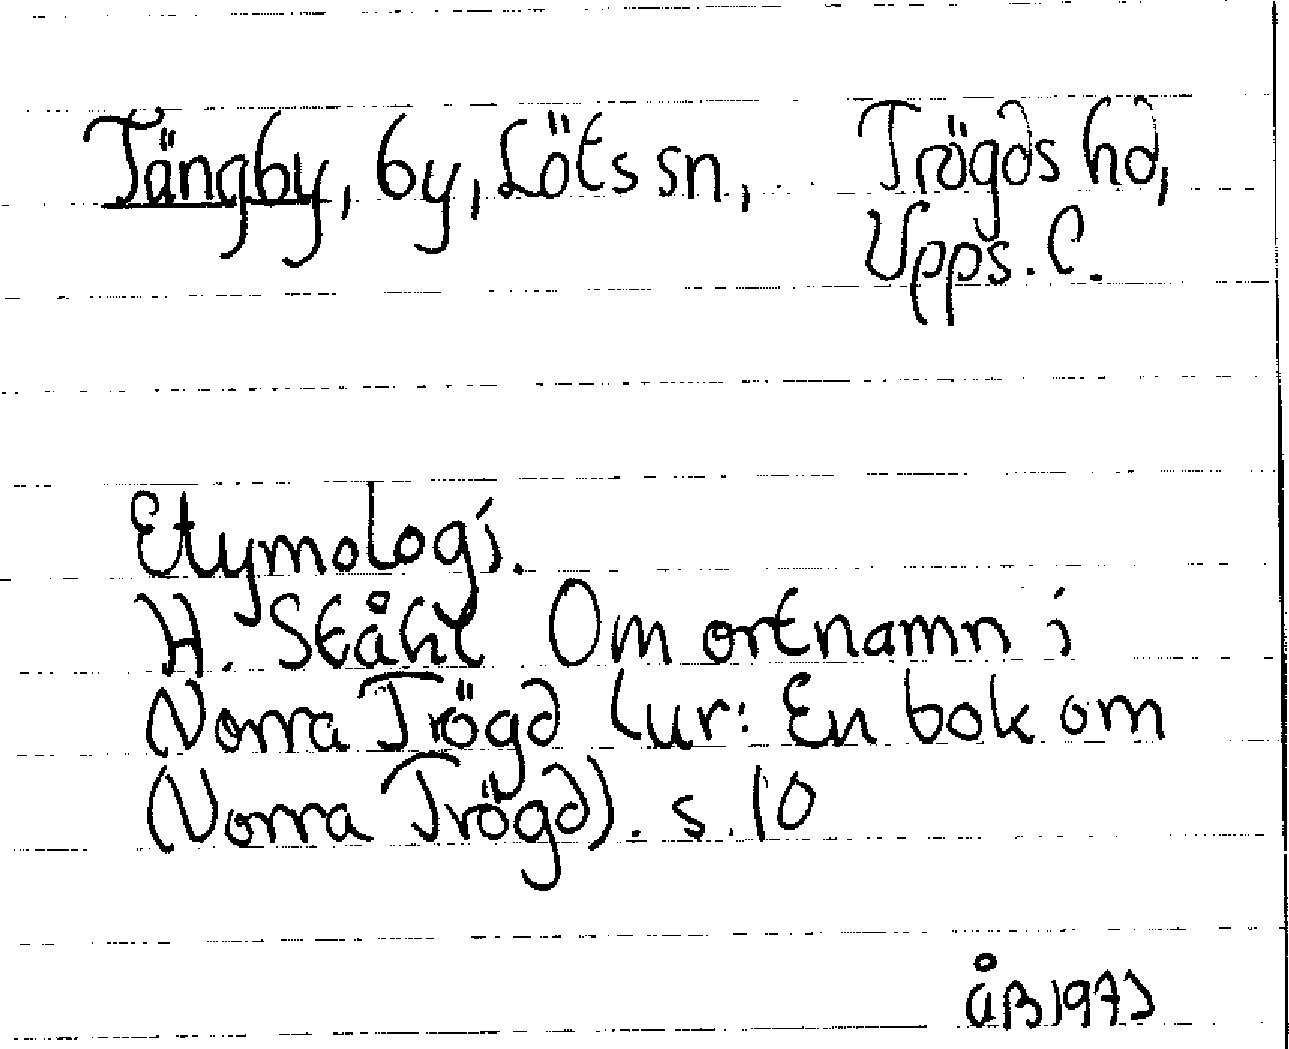 Tängby, by, Löts sn, Trögds hd,
Upps. C.
Etymologi.
H. Ståhl Om ortnamn i
Norra Trögd (ur: En bok om
Norra Trögd). s. 10
ÅB 1973